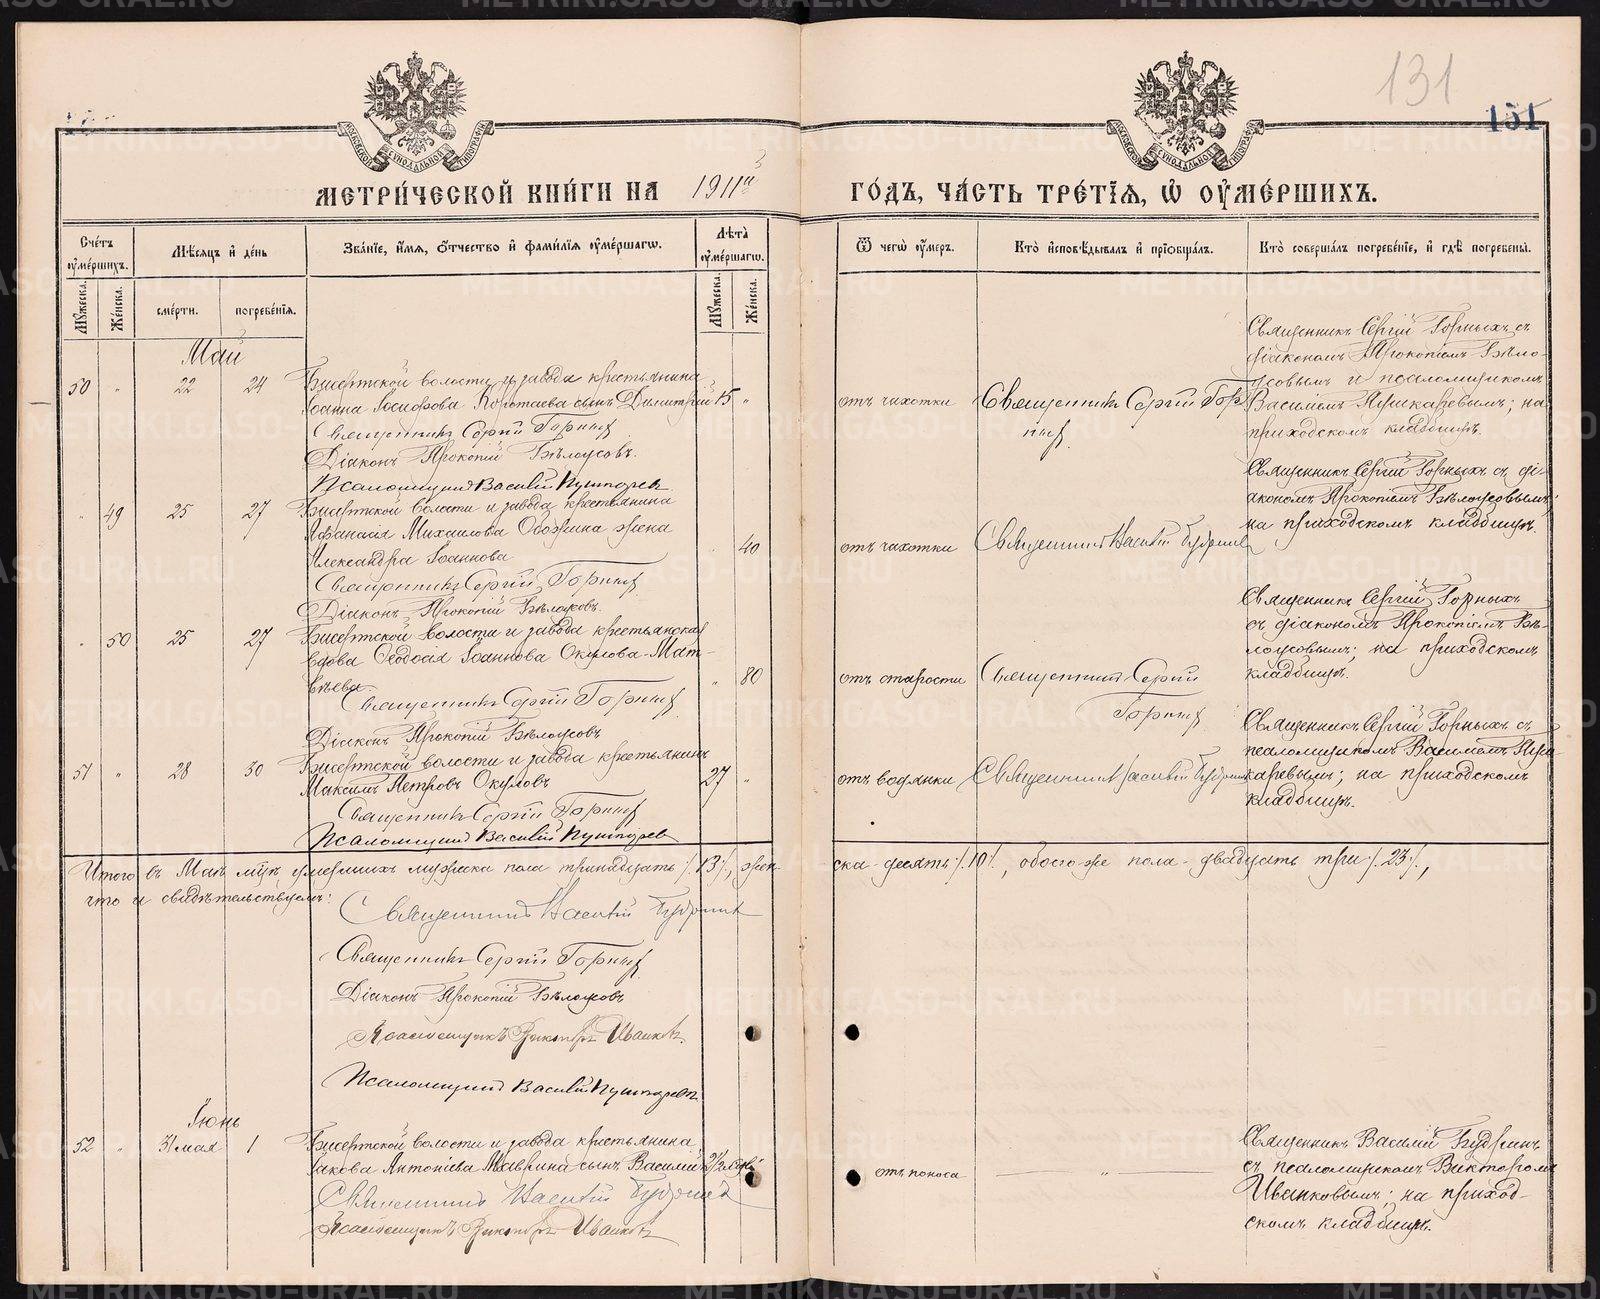 131
151
МЕТРИ́ЧЕСКОЙ КНИ́ГИ НА 1911й ГО́ДЪ, ЧА́СТЬ ТРЕ́ТІѦ, Ѡ ОУМЕ́РШИХЪ.
Сче́тъ оумершихъ.
Мѣ́сяцъ и де́нь
Зва́ніе, и́мя, о́тчество и фами́лія оуме́ршагѡ.
Лѣта̀ оуме́ршагѡ.
Ѿ чегѡ̀ оу́меръ.
Кто̀ исповѣ́дывалъ и пріобща́лъ.
Кто̀ соверша́лъ погребе́ніе, и гдѣ̀ погребены̀.
Мужеска.
Же́нска.
сме́рти.
погребе́нія.
Мужеска.
Же́нска.
Май
50 " 22 24 Бисертской волости и завода крестьянина
Іоанна Іосифова Коротаева сынъ Димитрій 15 "
Священникъ Сергій Горныхъ
Діаконъ Прокопій Бѣлоусовъ.
Псаломщикъ Василій Пушкарев
отъ чахотки
Священникъ Сергій Гор
ныхъ
Священникъ Сергій Горныхъ съ
діакономъ Прокопіемъ Бѣло-
усовымъ и псаломщикомъ
Василіемъ Пушкаревымъ; на
приходскомъ кладбищѣ.
" 49 25 27 Бисертской волости и завода крестьянина
Афанасія Михаилова жена
Александра Іоаннова " 40
Священникъ Сергій Горныхъ
Діаконъ Прокопій Бѣлоусовъ.
отъ чахотки
Священникъ Василій Будрин
Священникъ Сергій Горныхъ съ ді-
акономъ Прокопіемъ Бѣлоусовымъ;
на приходскомъ кладбищѣ.
" 50 25 27 Бисертской волости и завода крестьянская
вдова Ѳеодосія Іоаннова Окулова-Мат-
вѣева. " 80
Священникъ Сергій Горныхъ
Діаконъ Прокопій Бѣлоусовъ
отъ старости
Священникъ Сергій
Горныхъ
Священникъ Сергій Горныхъ
съ діакономъ Прокопіемъ Бѣ-
лоусовымъ; на приходскомъ
кладбищѣ.
51 " 28 30 Бисертской волости и завода крестьянинъ
Максимъ Петровъ Окуловъ 27 "
Священникъ Сергій Горныхъ
Псаломщикъ Василій Пушкарев
отъ водянки
Священникъ Василій Будрин
Священникъ Сергій Горныхъ съ
псаломщикомъ Василіемъ Пуш-
каревымъ; на приходскомъ
кладбищѣ.
Итого въ Маѣ мцѣ умершихъ мужска пола тринадцать /.13/., жен-
ска десять /.10/., обоего же пола двадцать три /.23/.,
что и свидѣтельствуемъ:
Священникъ Василій Будрин
Священникъ Сергій Горныхъ
Діаконъ Прокопій Бѣлоусовъ
Псаломщикъ Викторъ Иванковъ
Псаломщикъ Василій Пушкаревъ
Іюнь
52 " 31 мая 1 Бисертской волости и завода крестьянина
Іакова Антоніева Маврина сынъ Василій 2½
Священникъ Василій Будрин
Псаломщикъ Викторъ Иванковъ
отъ поноса
"
Священникъ Василій Будринъ
съ псаломщикомъ Викторомъ
Иванковымъ; на приход-
скомъ кладбищѣ.
METRIKI.GASO-URAL.RU